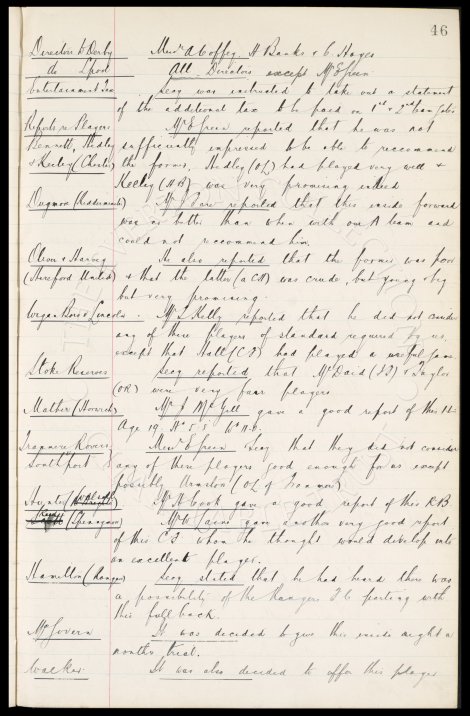 46
Directors to Derby Messrs A Coffey, H Banks & C. Hayes
do L'pool All Directors except Mr E Green
Entertainment Tax Secy was instructed to take out a statement
of the additional tax to be paid on 1st & 2nd team Gates
Reports re Players Mr E Green reported that he was not
Bennett, Hedley sufficiently impressed to be able to reccommend
& Keeley (Chester) the former. Hedley (OL) had played very well &
Keeley (HB) was very promising indeed
Dugmore (Kidderminster) reported that this inside forward
was no better than when with our A team and
could not reccommend him.
Oliver & Harvey He also reported that the former was poor
(Hereford United) & that the latter (a CH) was crude, but young & big
but very promising.
Wigan Boro v Lincoln. Mr L Kelly reported that he did not consider
any of these Players of standard required by us,
except that Hall (CF) had played a useful game
Stoke Reserves Secy reported that & Taylor
(OR) were very fair players
Mather (Horwich) gave a good report of this
Age 19. Ht 5.8
Tranmere Rovers Messrs E Green Secy that they did not consider
Southport any of these players good enough for us except
possibly Urmston (OL of Tranmere)
Hunter Mr H Cook gave a good report of this RB
(Spennymoor) gave another very good report
of this CF whom he thought would develop into
an excellent player.
Hamilton (Rangers) Secy stated that he had heard there was
a possibility of the Rangers F.C parting with
this full back.
McGovern It was decided to give this inside
months trial.
Walker It was also decided to offer this player